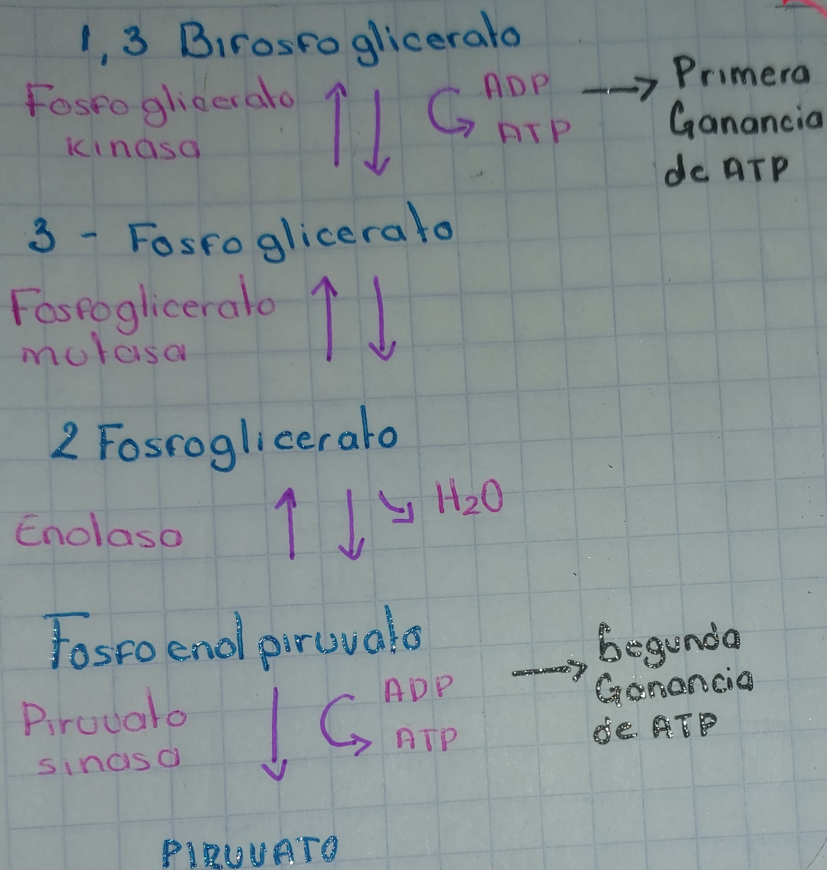 1,3 Bifosfoglicerato
Fosfoglicerato
kinasa
ADP
ATP
Primera
Ganancia
de ATP
3 - Fosfoglicerato
Fosfoglicerato
mutasa
2 Fosfoglicerato
Enolasa
H₂O
Fosfoenolpiruvato
Piruvato
sinasa
ADP
ATP
Segunda
Ganancia
de ATP
PIRUVATO